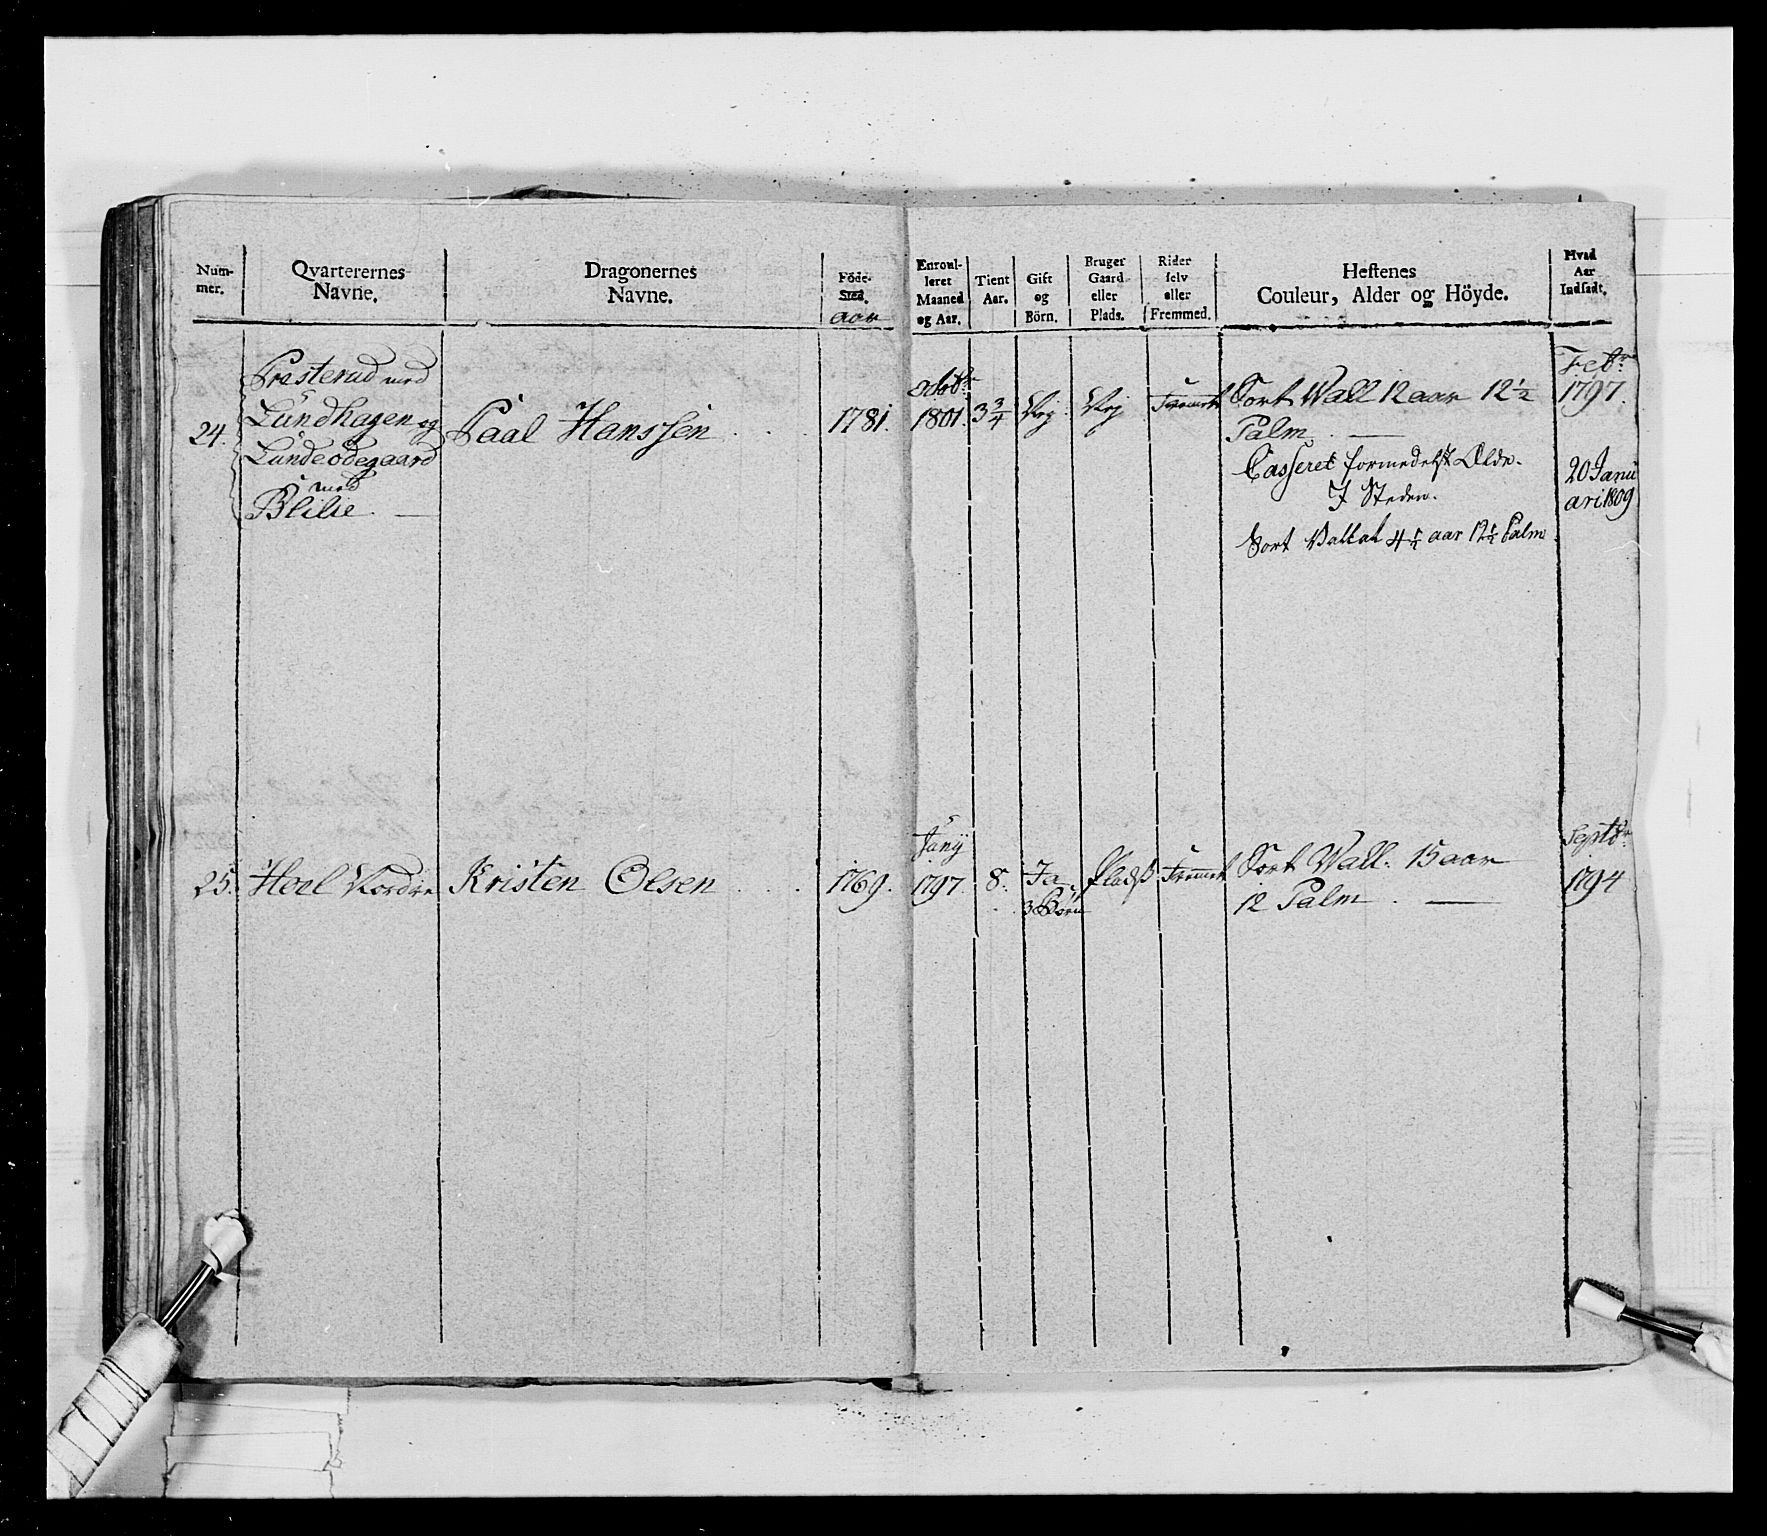 Num-
mer.
Qvarterernes
Navne.
Dragonernes
Navne.
Föde-
Sted.
aar
Enroul-
leret
Maaned
og Aar.
Tient
Aar.
Gift
og
Börn.
Bruger
Gaard
eller
Plads.
Rider
selv
eller
Fremmed.
Hestenes
Couleur, Alder og Höyde.
Hvad
Aar
Indsadt.
24.
Presterud med
Lundhagen og
Lundeödegaard
med
Blilie.
Paal Hanssen
1781.
Octbr
1801.
3 3/4
Nej
Nej
Fremet
Sort Wall 12 aar 12 1/2
Palm.
Casseret formedelst Ælde.
I Steden.
Sort Vallak 4 1/2 aar 12 1/2 Palm
Febr
1797.
20 Janu
ari 1809
25.
Hoel Nordre
Kristen Olsen
1769.
1797.
8.
Ja
3 Börn
Pladß
Fremet
Sort Wall. 15 aar
12 Palm.
Septbr
1794